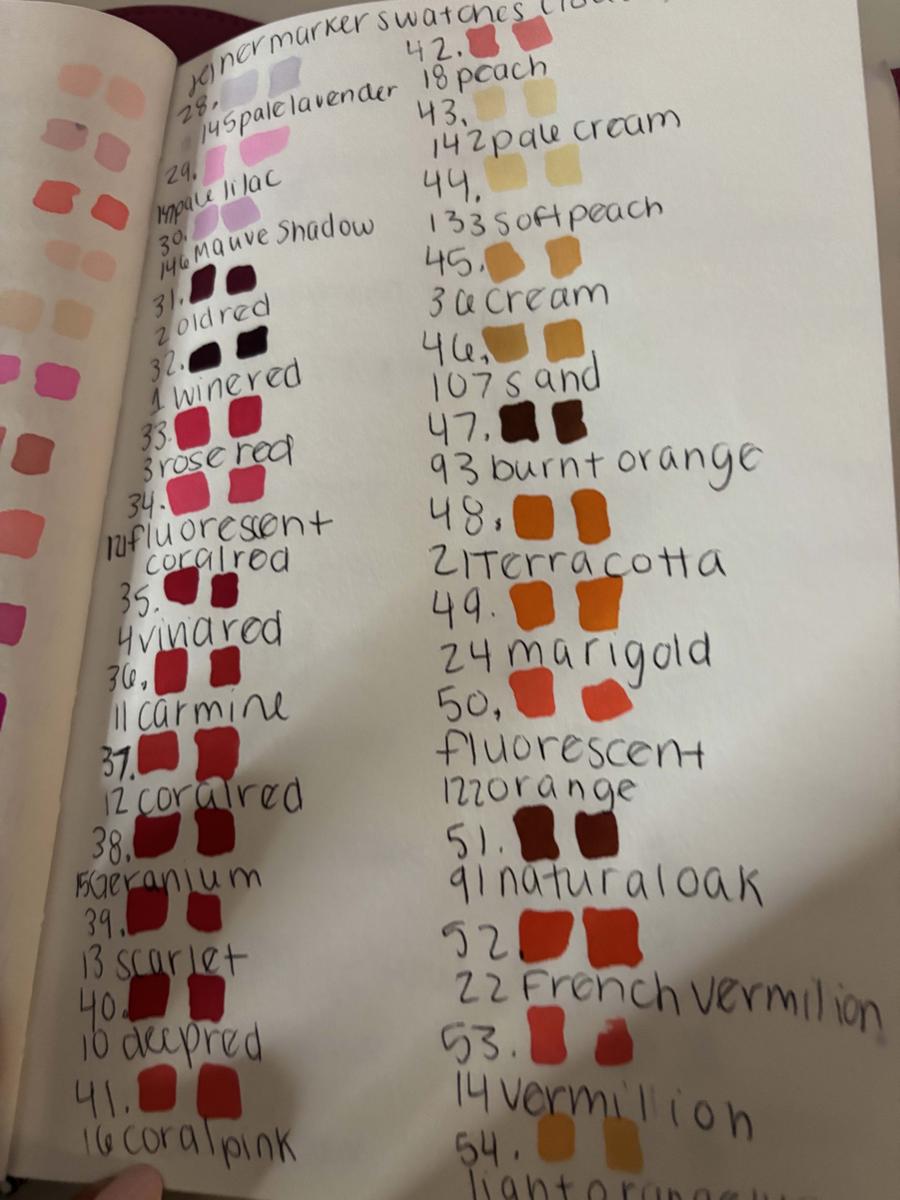 marker swatches
28.
145 pale lavender
29.
147 pale lilac
30.
146 Mauve Shadow
31.
2 old red
32.
1 wine red
33.
3 rose red
34.
121 fluorescent
coral red
35.
4 vinared
36.
11 carmine
37.
12 coral red
38.
15 Geranium
39.
13 scarlet
40.
10 deep red
41.
16 coral pink
42.
18 peach
43.
142 pale cream
44.
133 soft peach
45.
36 cream
46.
107 sand
47.
93 burnt orange
48.
21 Terra cotta
49.
24 marigold
50.
fluorescent
122 orange
51.
91 natural oak
52.
22 French vermilion
53.
14 vermillion
54.
light orange